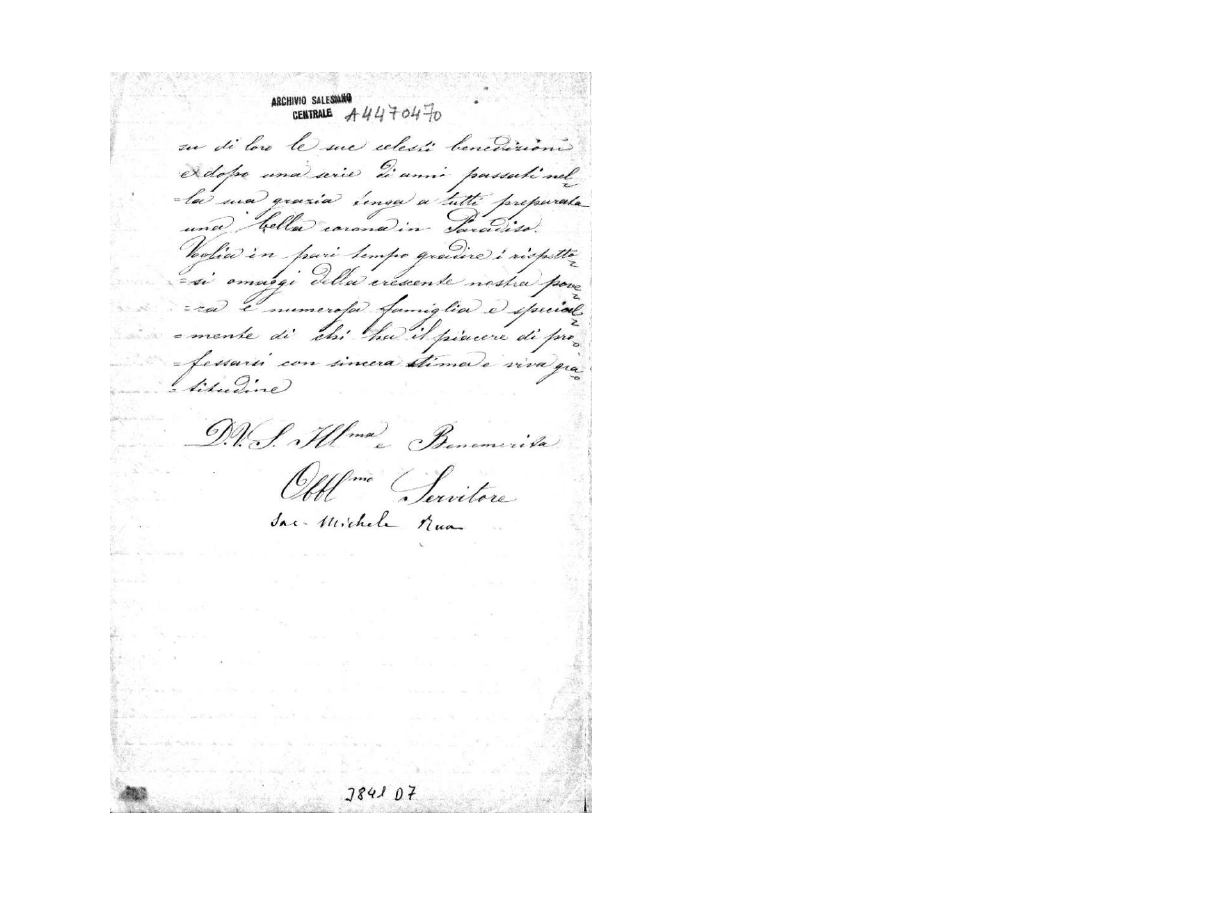 ARCHIVIO SALESIANO
CENTRALE A4470470
su di loro le sue celesti benedizioni
e dopo una serie di anni passati nel=
=la sua grazia tenga a tutti preparata
una bella corona in Paradiso.
Voglia in pari tempo gradire i rispetto=
=si omaggi della crescente nostra pove=
=ra e numerosa famiglia e special=
=mente di chi ha il piacere di pro=
=fessarsi con sincera stima e viva gra=
=titudine
D.V.S. Ill.ma e Benemerita
Obbl.mo Servitore
Sac. Michele Rua
3841 D7